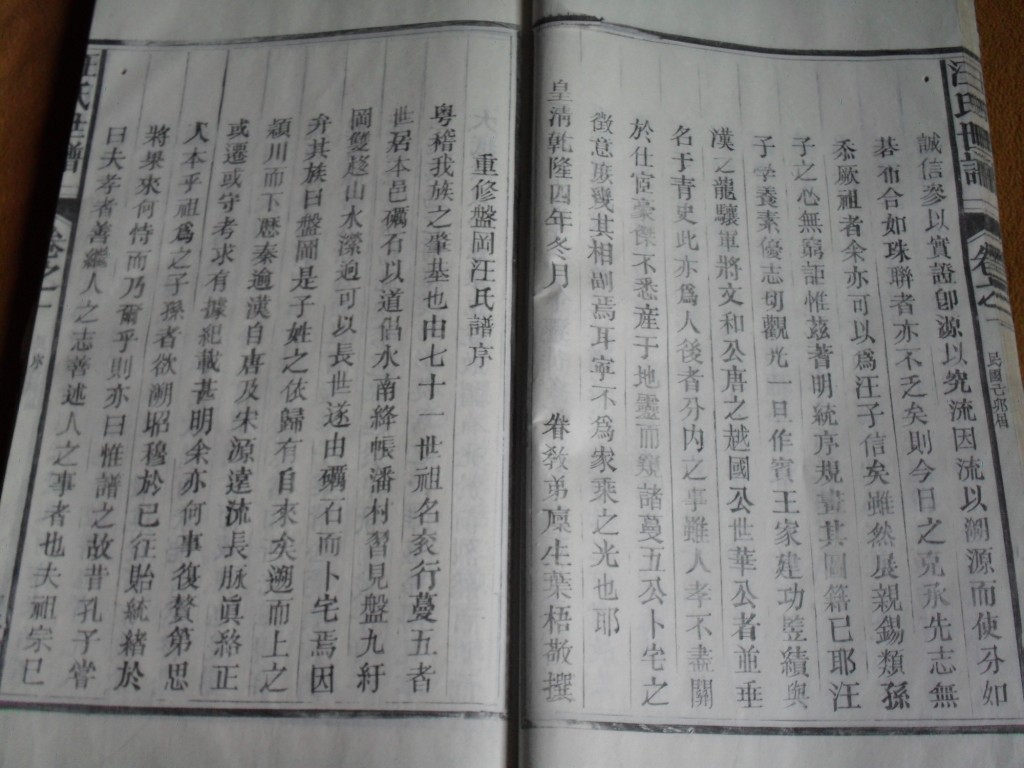 汪氏世譜
卷之一
民國己卯
誠信參以實證卽源以究流因流以溯源而使分如
碁布合如珠聯者亦不乏矣則今日之克承先志無
忝厥祖者余亦可以爲汪子信矣雖然展親錫類孫
子之心無窮詎惟茲著明統序規畫其圖籍已耶汪
子學養素優志切觀光一旦作賓王家建功竪績與
漢之龍驤軍將文和公唐之越國公世華公者並垂
名于青史此亦爲人後者分內之事雖人孝不盡關
於仕宦豪傑不悉産于地靈而窺諸蔓五公卜宅之
徵意庶幾其相副焉耳寧不爲家乘之光也耶
皇清乾隆四年冬月
眷敎弟凛生葉梧敬撰
重修盤岡汪氏譜序
粤稽我族之肇基也由七十一世祖名衮行蔓五者
世居本邑礪石以道倡水南絳帳潘村習見盤九紆
岡雙趍山水深逈可以長世遂由礪石而卜宅焉因
弁其族曰盤岡是子姓之依歸有自來矣遡而上之
潁川而下歷秦逾漢自唐及宋源遠流長脉眞絡正
或遷或守考求有據紀載甚明余亦何事復贅第思
人本乎祖爲之子孫者欲溯昭穆於已往貽統緒於
將果來何恃而乃爾乎則亦曰惟譜之故昔孔子嘗
曰夫孝者善繼人之志善述人之事者也夫祖宗已
汪氏世譜
卷之一
序